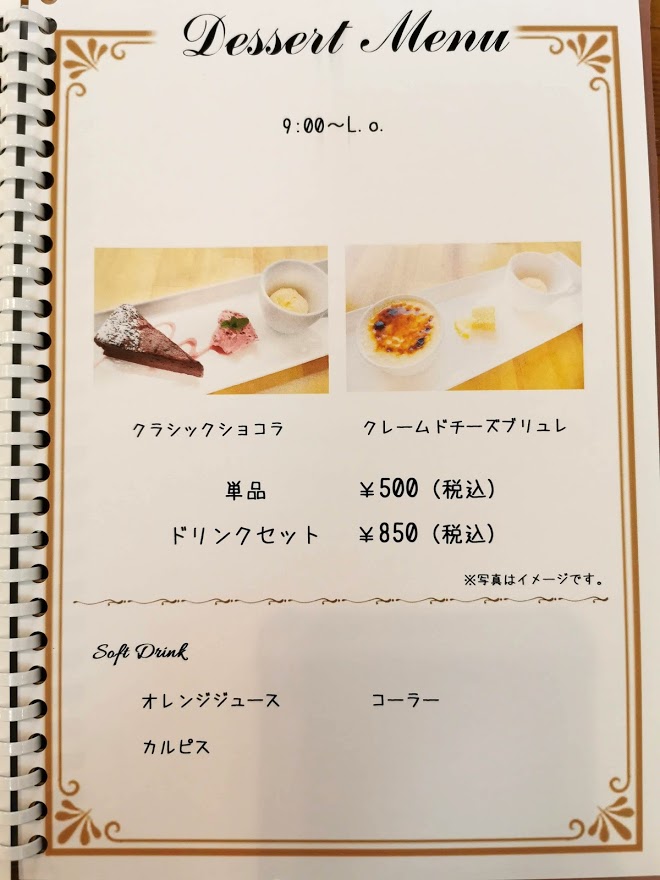 Dessert Menu
9:00～L.o.
クラシックショコラ クレームドチーズブリュレ
単品 ￥500 (税込)
ドリンクセット ￥850 (税込)
※写真はイメージです。
Soft Drink
オレンジジュース コーラー
カルピス